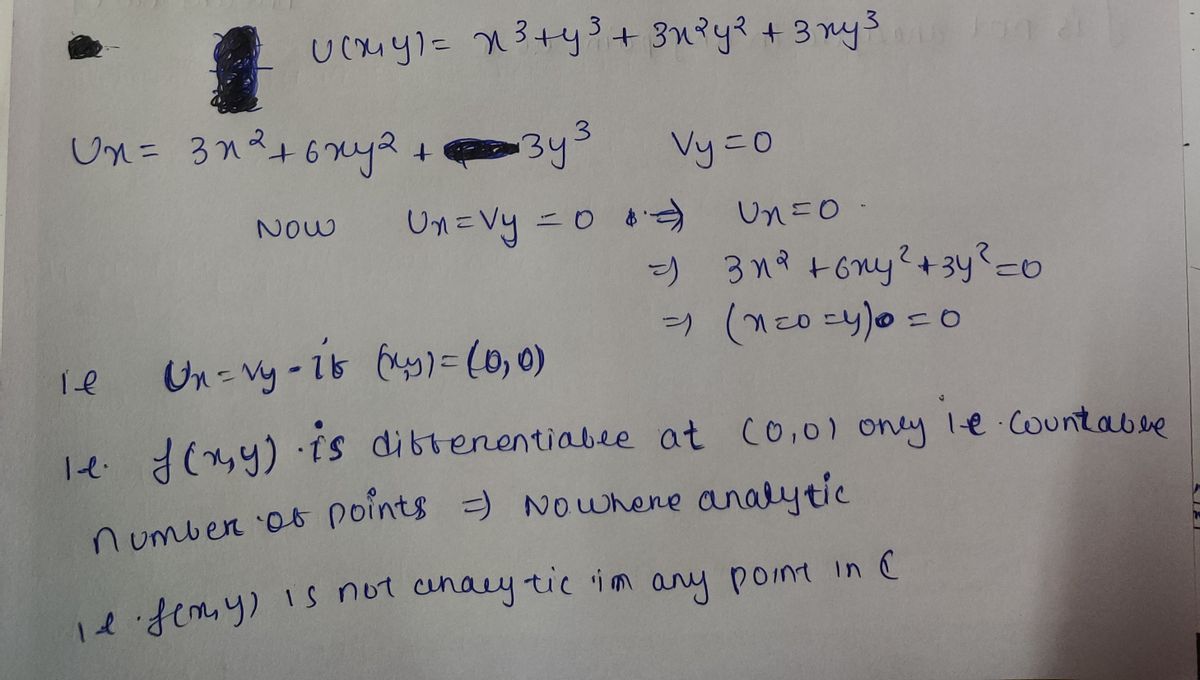 U(x,y) = x³+y³ + 3x²y² + 3xy³
Ux = 3x²+6xy² + 3y³ Vy=0
NOW Ux=Vy = 0 ⇒ Ux=0.
⇒ 3x² +6xy²+3y²=0
⇒ (x=0=y) = 0
ie Ux=Vy - if (x,y)=(0,0)
ie. f(x,y) is differentiable at (0,0) only i.e. Countable
number of points ⇒ Nowhere analytic
ie. f(x,y) is not analytic im any point in ℂ